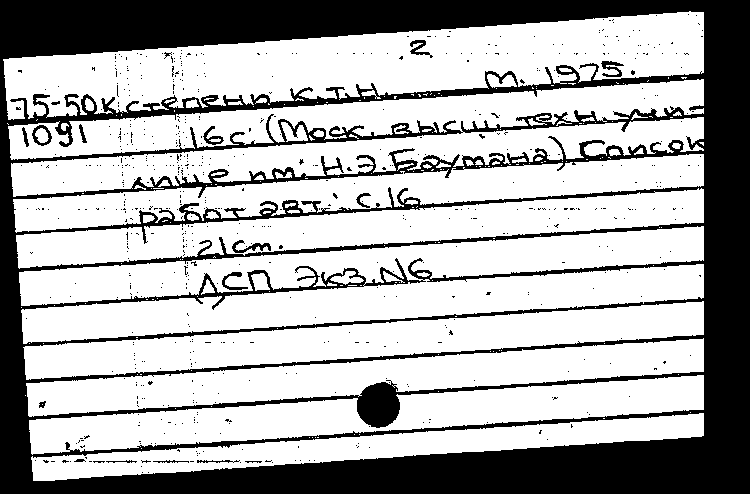 2
75-50к степени к.т.н. М., 1975.
1091 16с. (Моск. высш. техн. учи-
лище им. Н.Э.Баумана) Список
работ авт.: с.16
21cm.
ДСП Экз.N6.